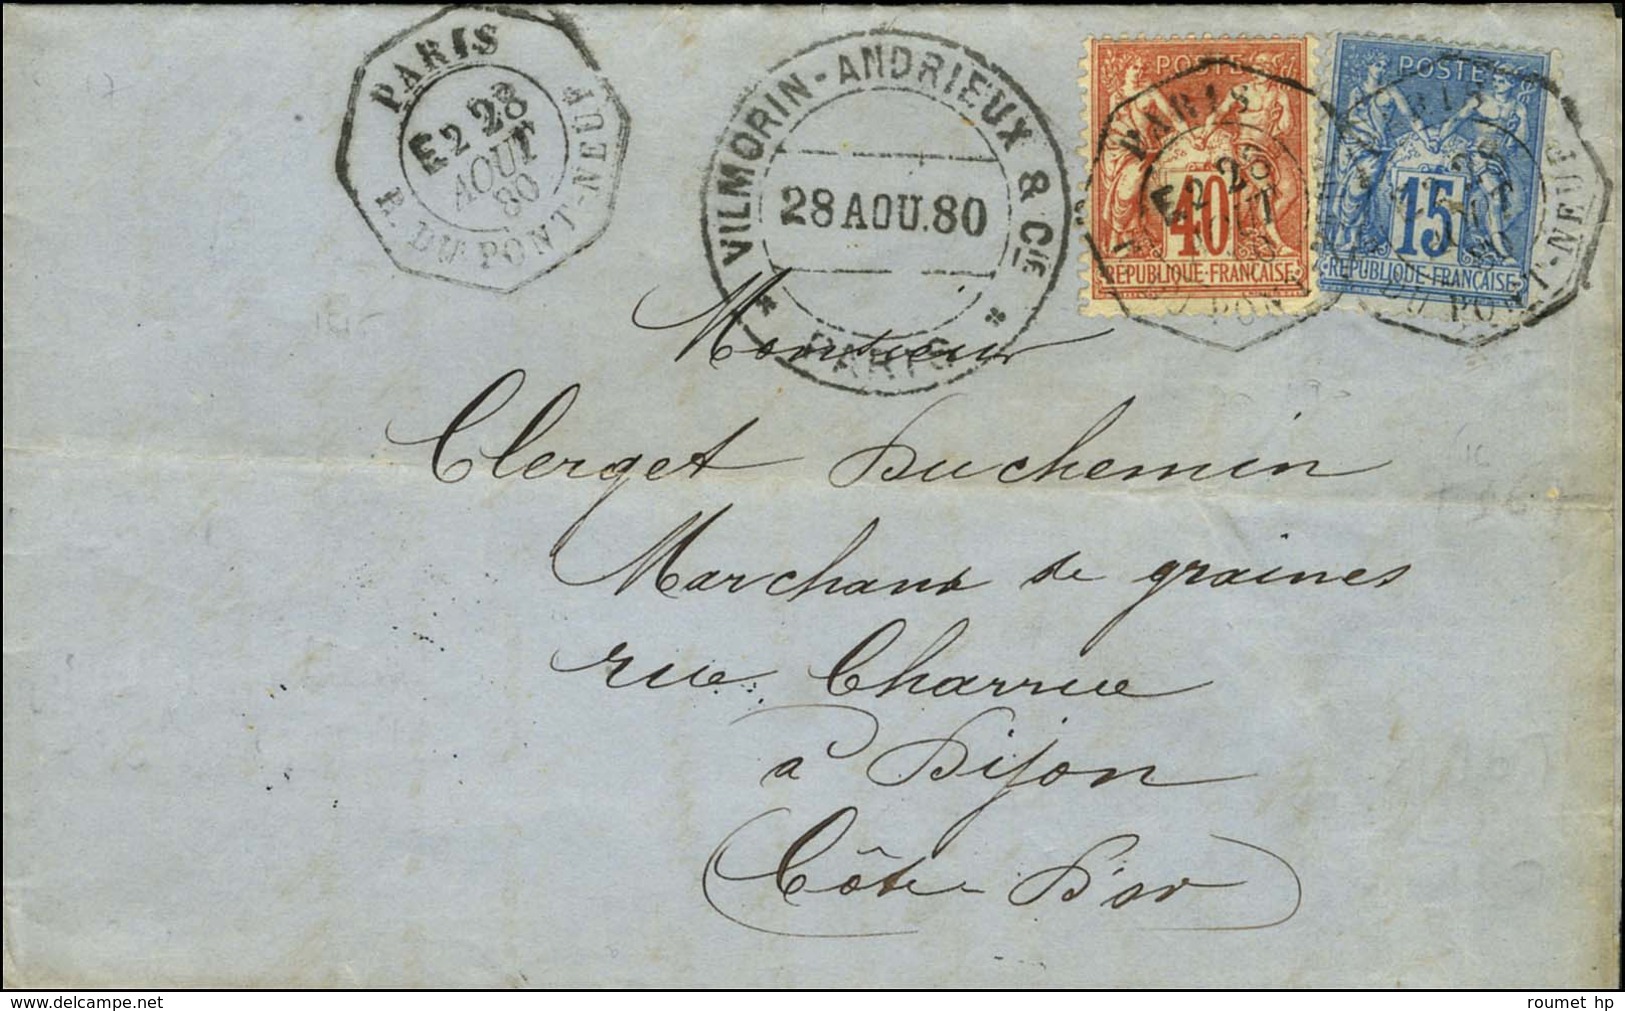 PARIS
E2 28
AOUT
80
R. DU PONT-NEUF
VILMORIN-ANDRIEUX & CIE
28 AOU.80
* PARIS *
POSTE
40
REPUBLIQUE-FRANÇAISE
PARIS
E2 28
POSTE
15
REPUBLIQUE-FRANÇAISE
DU PONT-NEUF
Monsieur
Clerget Duchemin
Marchand de graines
rue Charrue
à Dijon
Côte D'or
www.delcampe.net
roumet hp